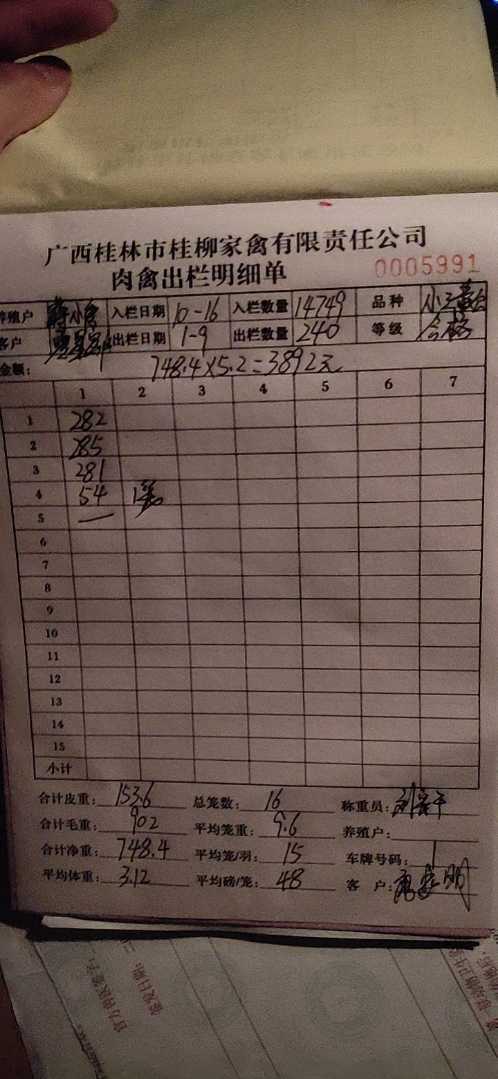 广西桂林市桂柳家禽有限责任公司
肉禽出栏明细单 0005991
养殖户 入栏日期 10-16 入栏数量 14749 品种
客户 出栏日期 1-9 出栏数量 240 等级 合格
金额: 748.4×5.2=3892元
1 2 3 4 5 6 7
1 282
2 285
3 281
4 54
5 —
6
7
8
9
10
11
12
13
14
15
小计
合计皮重: 153.6 总笼数: 16 称重员:
合计毛重: 902 平均笼重: 9.6 养殖户:
合计净重: 748.4 平均笼/羽: 15 车牌号码:
平均体重: 3.12 平均磅/笼: 48 客 户: